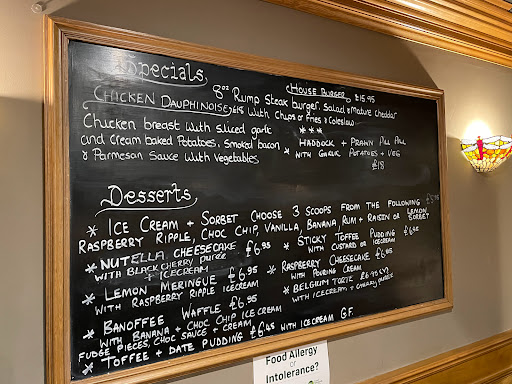 Specials
CHICKEN DAUPHINOISE £18
Chicken breast with sliced garlic
and cream baked Potatoes, Smoked bacon
& Parmesan Sauce with Vegetables
HOUSE BURGER £15.95
8oz Rump Steak burger, Salad & Mature cheddar
with Chips or Fries & Coleslaw
***
* HADDOCK + PRAWN PILL PILL
WITH GARLIC POTATOES + VEG
£18
Desserts
* ICE CREAM + SORBET CHOOSE 3 SCOOPS FROM THE FOLLOWING
RASPBERRY RIPPLE, CHOC CHIP, VANILLA, BANANA, RUM + RAISIN OR LEMON SORBET
* NUTELLA CHEESECAKE £6.95
WITH BLACK CHERRY PUREE
+ ICECREAM
* LEMON MERINGUE £6.95
WITH RASPBERRY RIPPLE ICECREAM
* BANOFFEE WAFFLE £6.95
WITH BANANA + CHOC CHIP ICE CREAM
FUDGE PIECES, CHOC SAUCE + CREAM
* TOFFEE + DATE PUDDING £6.95 WITH ICECREAM GF.
* STICKY TOFFEE PUDDING £6.95
WITH CUSTARD OR ICECREAM
* RASPBERRY CHEESECAKE £6.95
WITH POURING CREAM
* BELGIUM TORTE £6.95
WITH ICECREAM + CHERRY PUREE
Food Allergy
or
Intolerance?